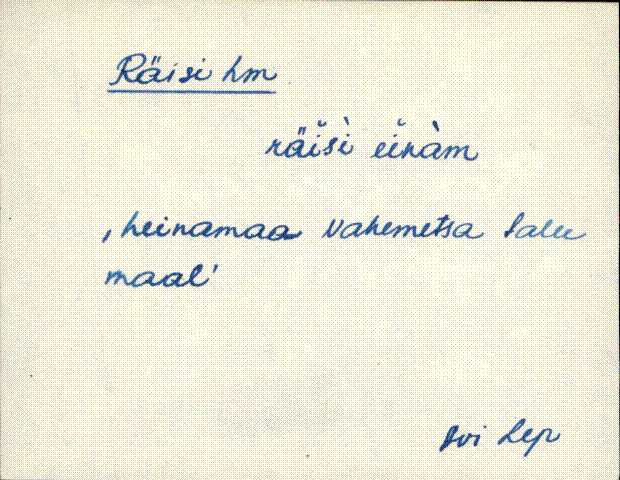 Räisi hm
räĭ̮sì eĭ̮nàm
‚heinamaa Vahemetsa talu
maal'
Lep